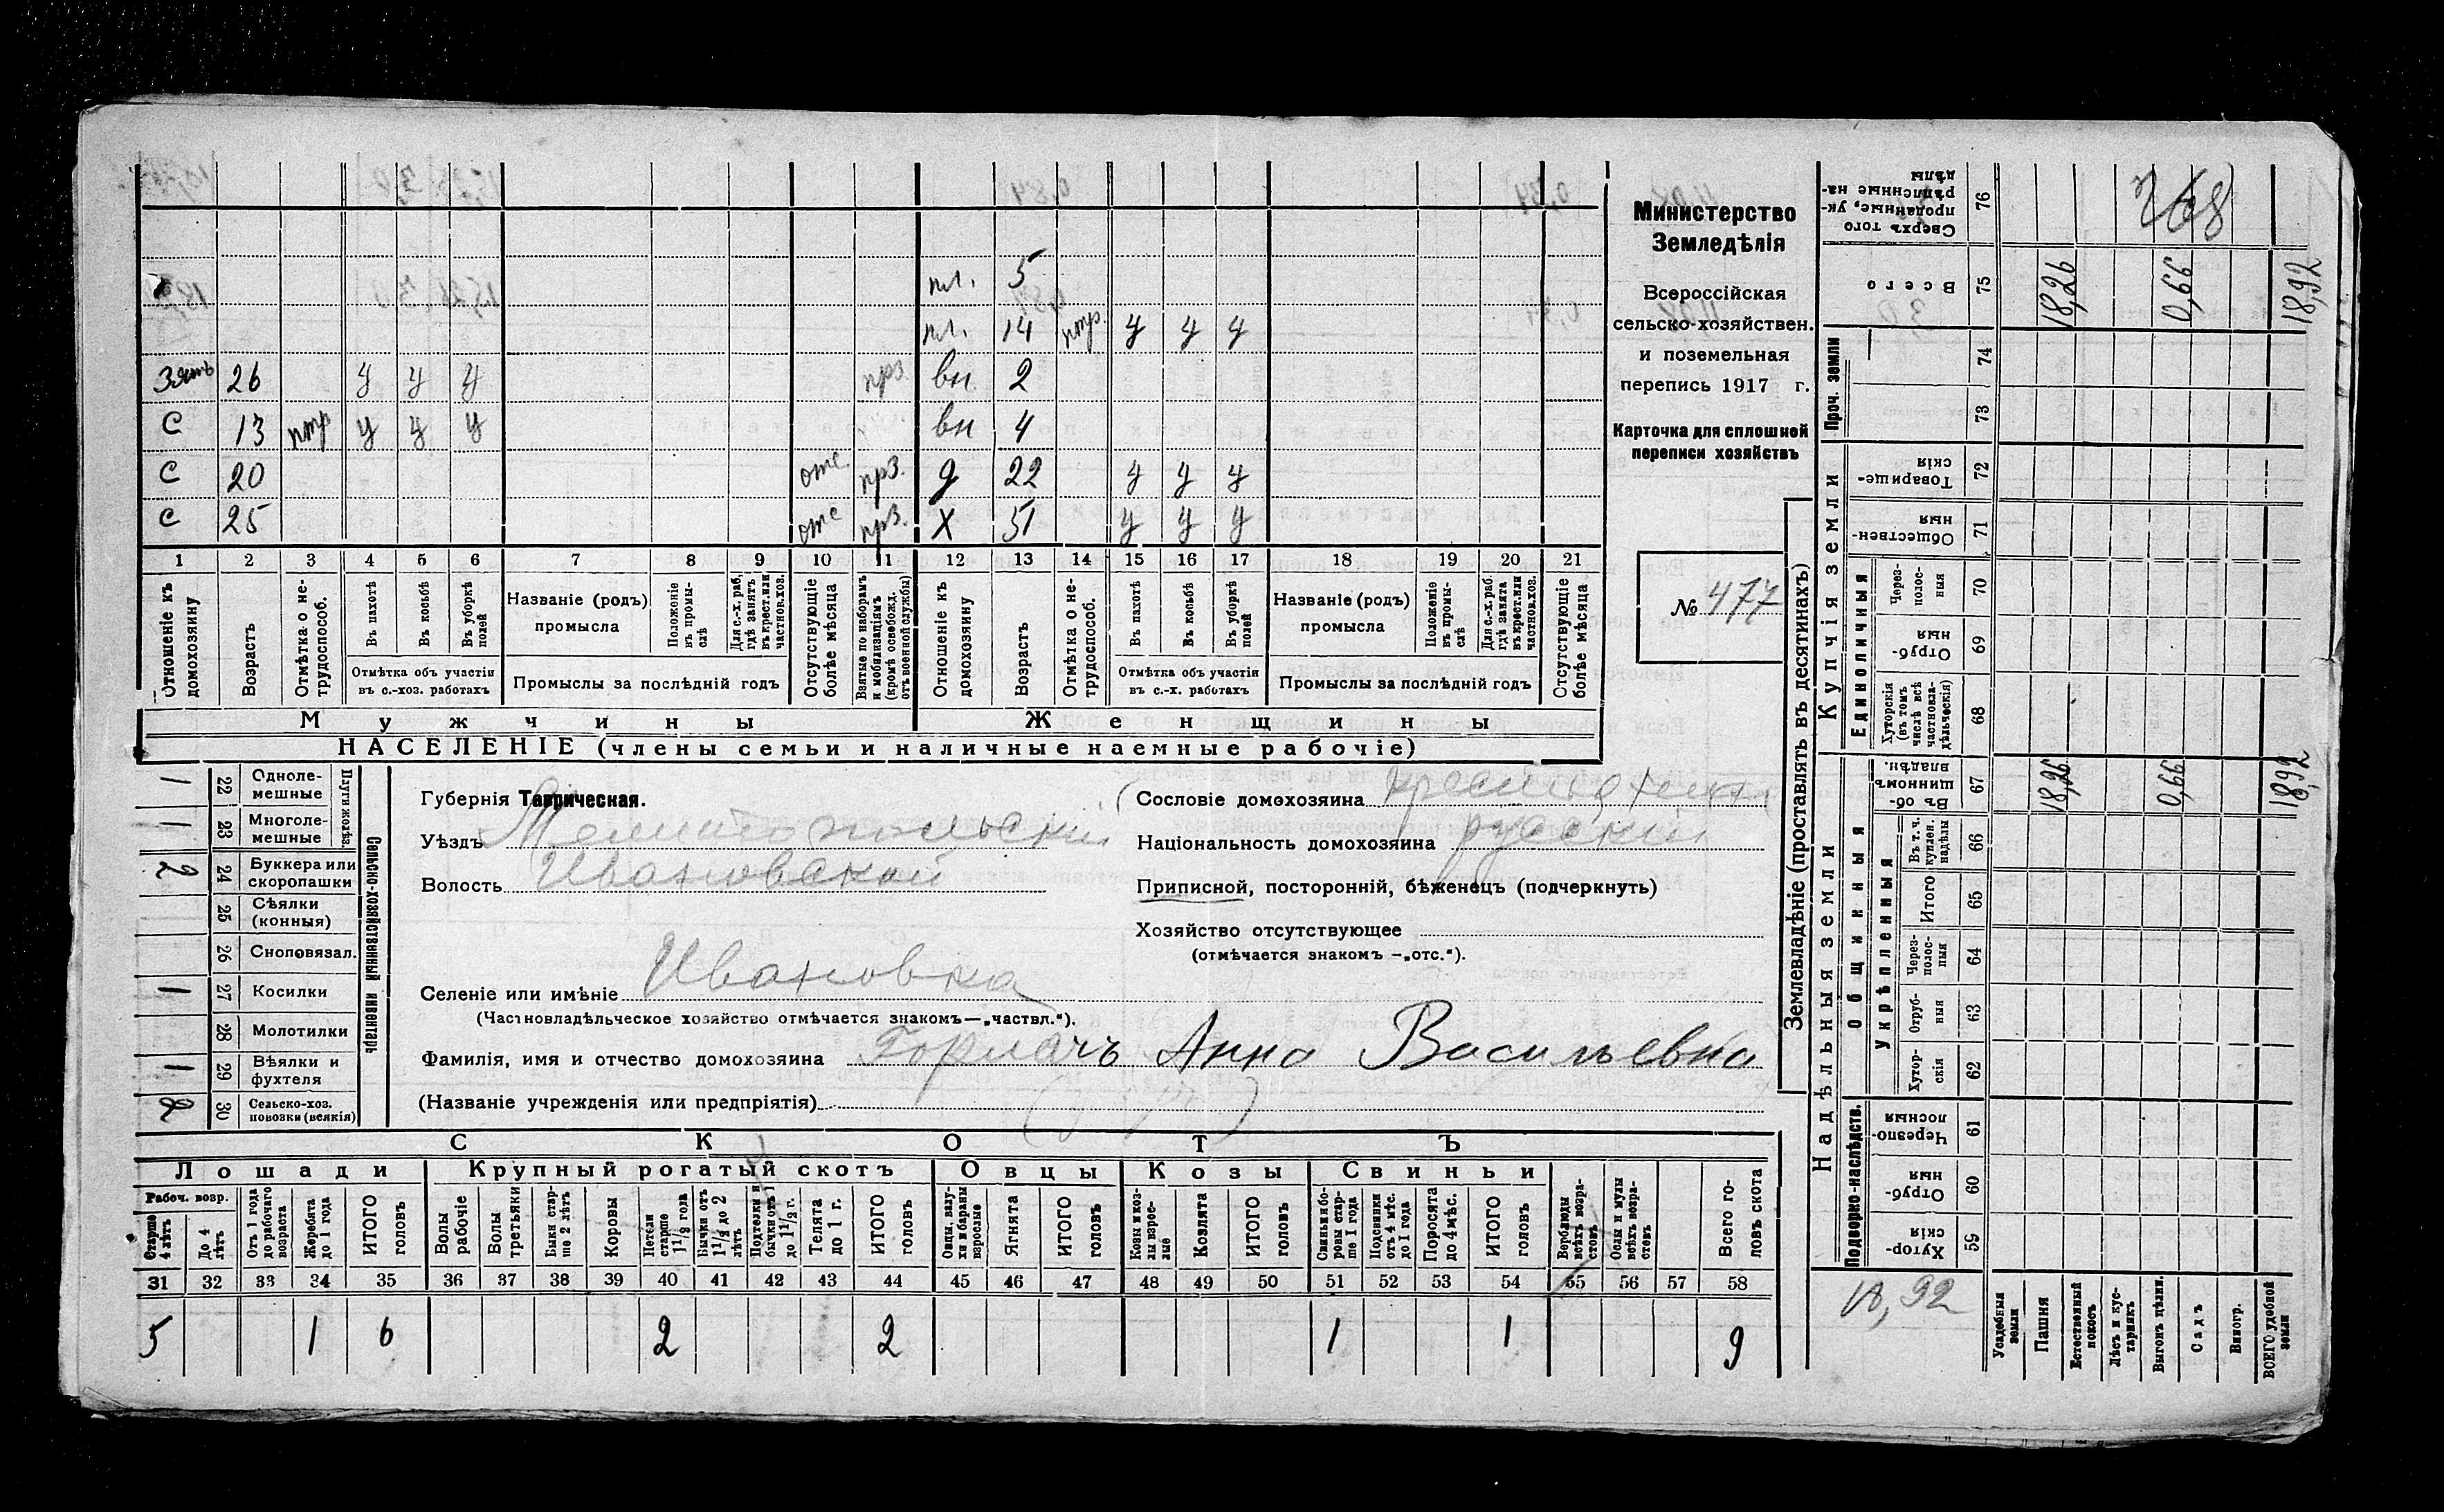 Министерство
Земледѣлія
Всероссійская
сельско-хозяйствен.
и поземельная
перепись 1917 г.
Карточка для сплошной
переписи хозяйствъ
№ 477
пл. 5
пл. 14 нтр. у у у
Зять 26 у у у прз. вн 2
С 13 нтр у у у вн 4
С 20 отс. прз. д 22 у у у
С 25 отс прз. Х 51 у у у
1 2 3 4 5 6 7 8 9 10 11 12 13 14 15 16 17 18 19 20 21
Отношеніе къ домохозяину
Возрастъ
Отмѣтка о нетрудоспособ.
Въ пахотѣ
Въ косьбѣ
Въ уборкѣ полей
Отмѣтка объ участіи
въ с.-хоз. работахъ
Названіе (родъ)
промысла
Положеніе въ промыслѣ
Для с.-х. раб. гдѣ занятъ въ крест. или частнов. хоз.
Промыслы за послѣдній годъ
Отсутствующіе болѣе мѣсяца
Взятые по наборамъ и мобилизаціямъ (кромѣ освобожд. отъ военной службы)
Отношеніе къ домохозяину
Возрастъ
Отмѣтка о нетрудоспособ.
Въ пахотѣ
Въ косьбѣ
Въ уборкѣ полей
Отмѣтка объ участіи
въ с.-х. работахъ
Названіе (родъ)
промысла
Положеніе въ промыслѣ
Для с.-х. раб. гдѣ занята въ крест. или частнов. хоз.
Промыслы за послѣдній годъ
Отсутствующіе болѣе мѣсяца
Мужчины Женщины
НАСЕЛЕНІЕ (члены семьи и наличные наемные рабочіе)
Сельско-хозяйственный инвентарь
Плуги желѣз.
1 22 Однолемешные
1 23 Многолемешные
2 24 Буккера или скоропашки
25 Сѣялки (конныя)
26 Сноповязал.
1 27 Косилки
28 Молотилки
1 29 Вѣялки и фухтеля
2 30 Сельско-хоз. повозки (всякія)
Губернія Таврическая.
Уѣздъ Мелитопольскій
Волость Ивановской
Селеніе или имѣніе Ивановка
(Частновладѣльческое хозяйство отмѣчается знакомъ—„частвл.“).
Фамилія, имя и отчество домохозяина Горпачъ Анна Васильевна
(Названіе учрежденія или предпріятія)
Сословіе домохозяина
Національность домохозяина русскій
Приписной, посторонній, бѣженецъ (подчеркнуть)
Хозяйство отсутствующее
(отмѣчается знакомъ —„отс.“).
СКОТЪ
Лошади Крупный рогатый скотъ Овцы Козы Свиньи
Рабоч. возр.
Старше 4 лѣтъ
До 4 лѣтъ
Отъ 1 года до рабочаго возраста
Жеребята до 1 года
ИТОГО головъ
Волы рабочіе
Волы третьяки
Быки старше 2 лѣтъ
Коровы
Нетели старше 1 1/2 года
Бычки отъ 1 1/2 до 2 лѣтъ
Подтелки и бычки отъ 1 до 1 1/2 г.
Телята до 1 г.
ИТОГО головъ
Овцы, валухи и бараны взрослые
Ягнята
ИТОГО головъ
Козы и козлы взрослые
Козлята
ИТОГО головъ
Свиньи и боровы старше 1 года
Подсвинки отъ 4 мѣс. до 1 года
Поросята до 4 мѣс.
ИТОГО головъ
Верблюды всѣхъ возрастовъ
Ослы и мулы всѣхъ возрастовъ
Всего головъ скота
31 32 33 34 35 36 37 38 39 40 41 42 43 44 45 46 47 48 49 50 51 52 53 54 55 56 57 58
5 1 6 2 2 1 1 9
Землевладѣніе (проставлять въ десятинахъ)
Надѣльныя земли
Купчія земли
Проч. земли
Подворно-наслѣдств.
Общинныя
Укрѣпленныя
Единоличныя
Сверхъ того проданные, укрѣпленные надѣлы 76
Всего 75 18,26 0,66 18,92
74
73
Товарищескія 72
Общественныя 71
Черезполосныя 70
Отрубныя 69
Хуторскія (въ томъ числѣ всѣ частновладѣльческія) 68
Въ общинномъ владѣн. 67 18,26 0,66 18,92
Въ т. ч. куплен. надѣлы 66
Итого 65
Черезполосныя 64
Отрубныя 63
Хуторскія 62
Черезполосныя 61
Отрубныя 60
Хуторскія 59
18,92
Усадебныя земли
Пашня
Естественный покосъ
Лѣсъ и кустарникъ
Выгонъ цѣлин.
Садъ
Виногр.
ВСЕГО удобной земли